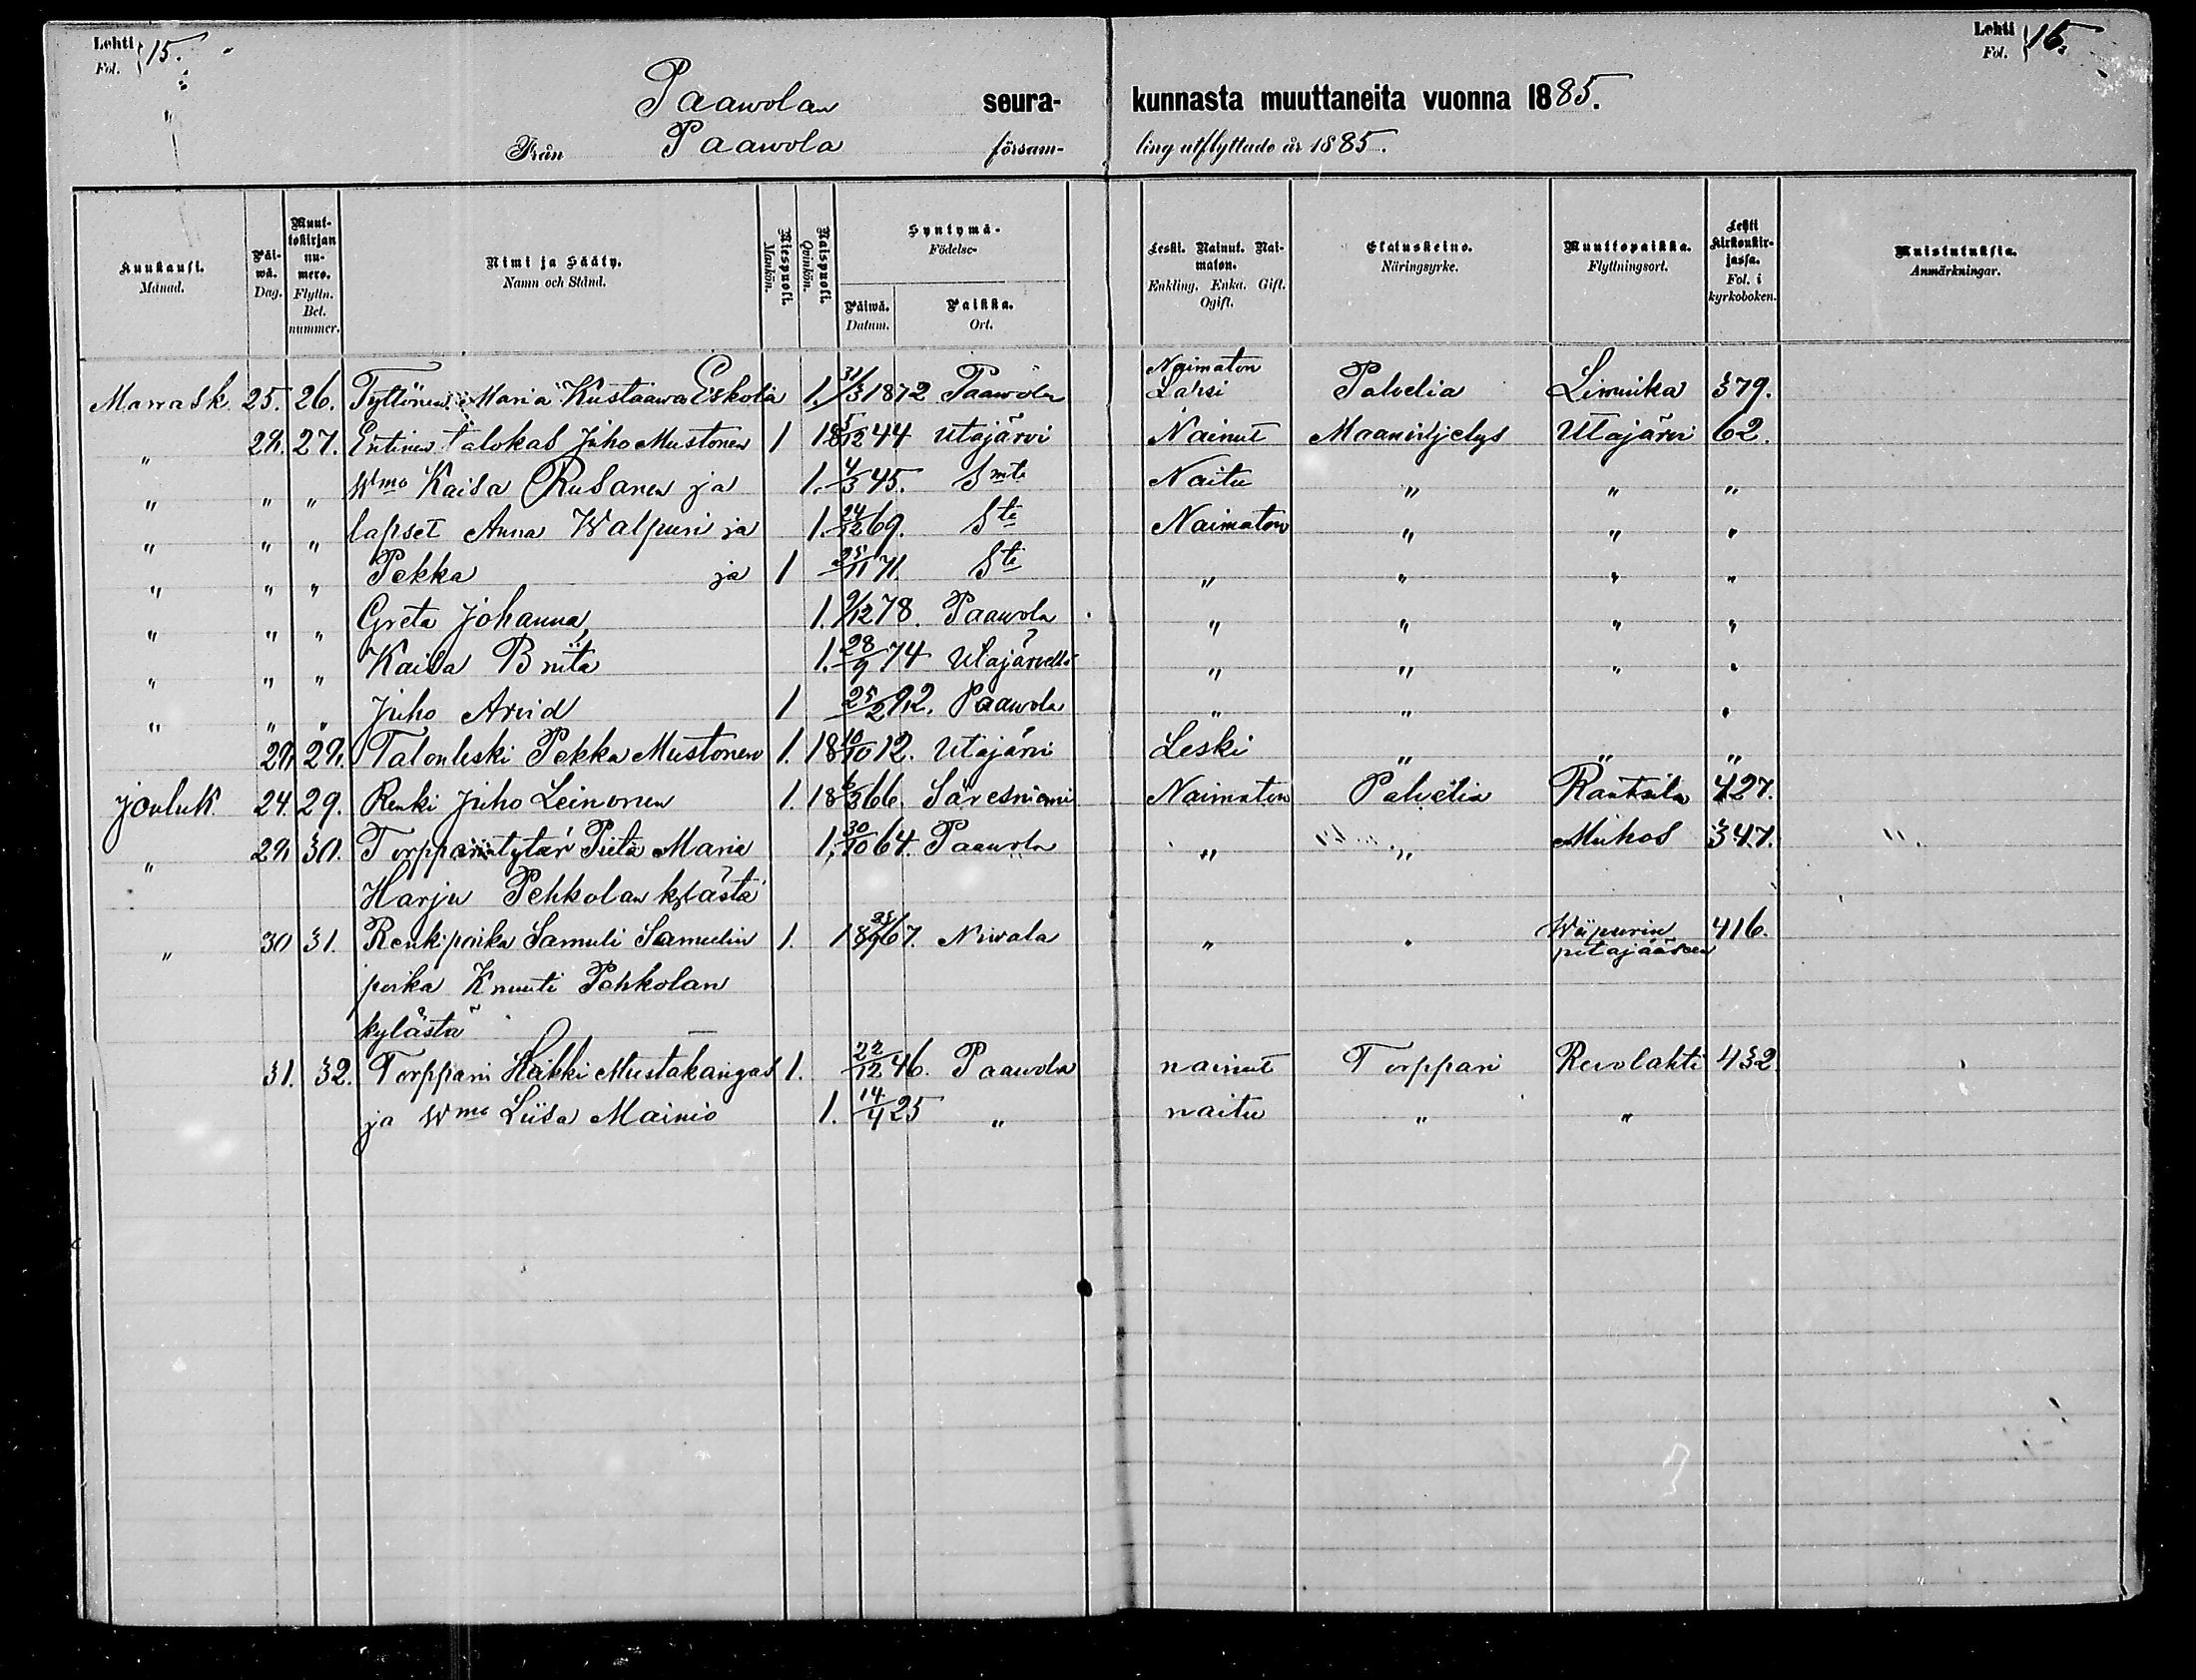 Lehti Fol. 15.
Lehti Fol. 16.
Paawolan seura- kunnasta muuttaneita vuonna 1885.
Från Paawola försam- ling utflyttade år 1885.
Kuukausi. Månad.
Päiwä. Dag.
Muuttokirjan numero. Flyttn. Bet. nummer.
Nimi ja Sääty. Namn och Stånd.
Miespuoli. Mankön.
Naispuoli. Qvinkön.
Syntymä- Födelse-
Päiwä. Datum.
Paikka. Ort.
Leski. Nainut. Naimaton. Enkling. Enka. Gift. Ogift.
Elatuskeino. Näringsyrke.
Muuttopaikka. Flyttningsort.
Lehti kirkonkirjassa. Fol. i kyrkoboken.
Muistutuksia. Anmärkningar.
Marrask. 25. 26. Maria Kustaawa Eskola 1. 31/3 1872 Paawola Naimaton Lapsi Palvelia Liminka 379.
" 28. 27. Entinen talokas Juho Mustonen 1 18 5/12 44 Utajärvi Nainut Maanviljelys Utajärvi 62.
" " " Wmo Kaisa Rusanen ja 1. 4/3 45. Smte Naitu " " "
" " " lapset Anna Walpuri ja 1. 24/12 69. Ste Naimaton " " "
" " " Pekka ja 1 25/11 71. Ste " " " "
" " " Greta Johanna, 1. 9/12 78. Paawola " " " "
" " " Kaisa Briita 1. 28/9 74 Utajärvellä " " " "
" " " Juho Arvid 1 Paawola " " "
28. 28. Talonleski Pekka Mustonen 1. 18 10/10 12. Utajärvi Leski " " "
Jouluk. 24. 29. Renki Juho Leinonen 1. 18 6/3 66. Säresniemi Naimaton Palvelia Rantsila 427.
" 28. 30. Torpparintytär Piita Maria 1. 30/10 64. Paawola " " Muhos 347.
Harju Pehkolan kylästä
" 30 31. Renkipoika Samuli Samulin 1. Niwala " " Wiipurin pitäjääseen 416.
poika Knuuti Pehkolan
kylästä
31. 32. Torppari Heikki Mustakangas 1. 22/12 46. Paawola nainut Torppari Revolahti 432
ja Wmo Liisa Mainio 1. 14/4 25 " naitu " "